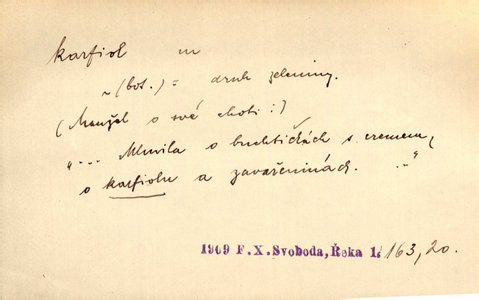 karfiol m
~ (bot.) = druh zeleniny.
(Manžel o své choti:)
"... Mluvila o buchtičkách s cremem,
o karfiolu a zavařeninách. ..."
1909 F. X. Svoboda, Řeka 1. 163, 20.